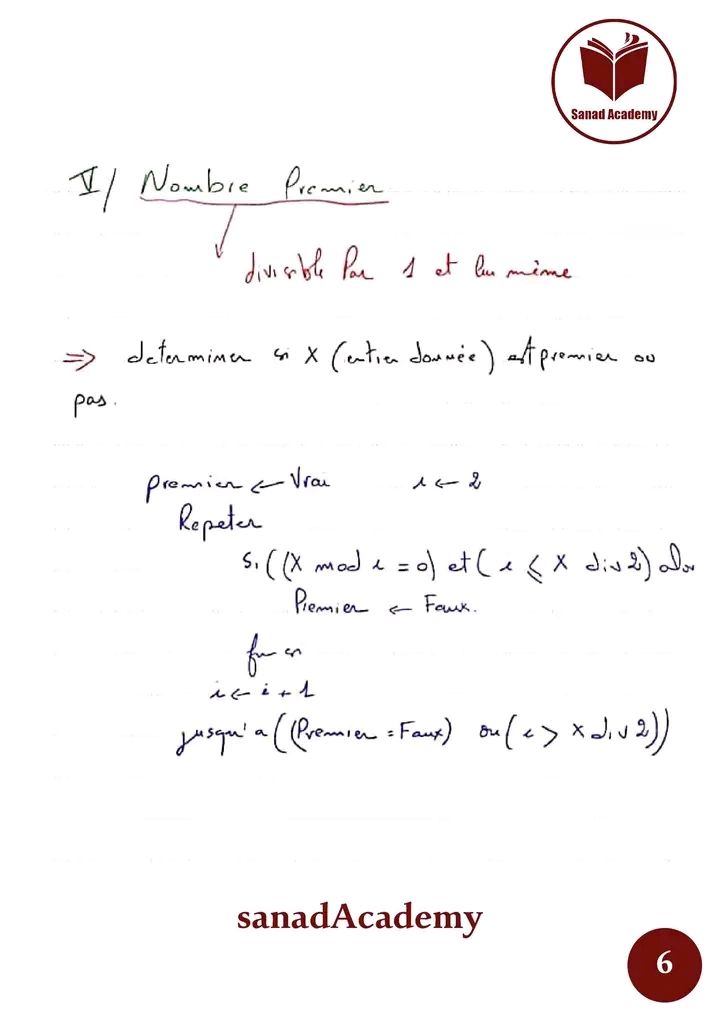 Sanad Academy
V/ Nombre Premier
divisible Par 1 et lui même
⇒ determiner si X (entier donnée) est premier ou
pas.
premier ← Vrai i ← 2
Repeter
Si ((X mod i = 0) et ( i ≤ X div 2) alor
Premier ← Faux.
fin si
i ← i + 1
jusqu'a ((Premier = Faux) ou ( i > X div 2))
sanadAcademy
6